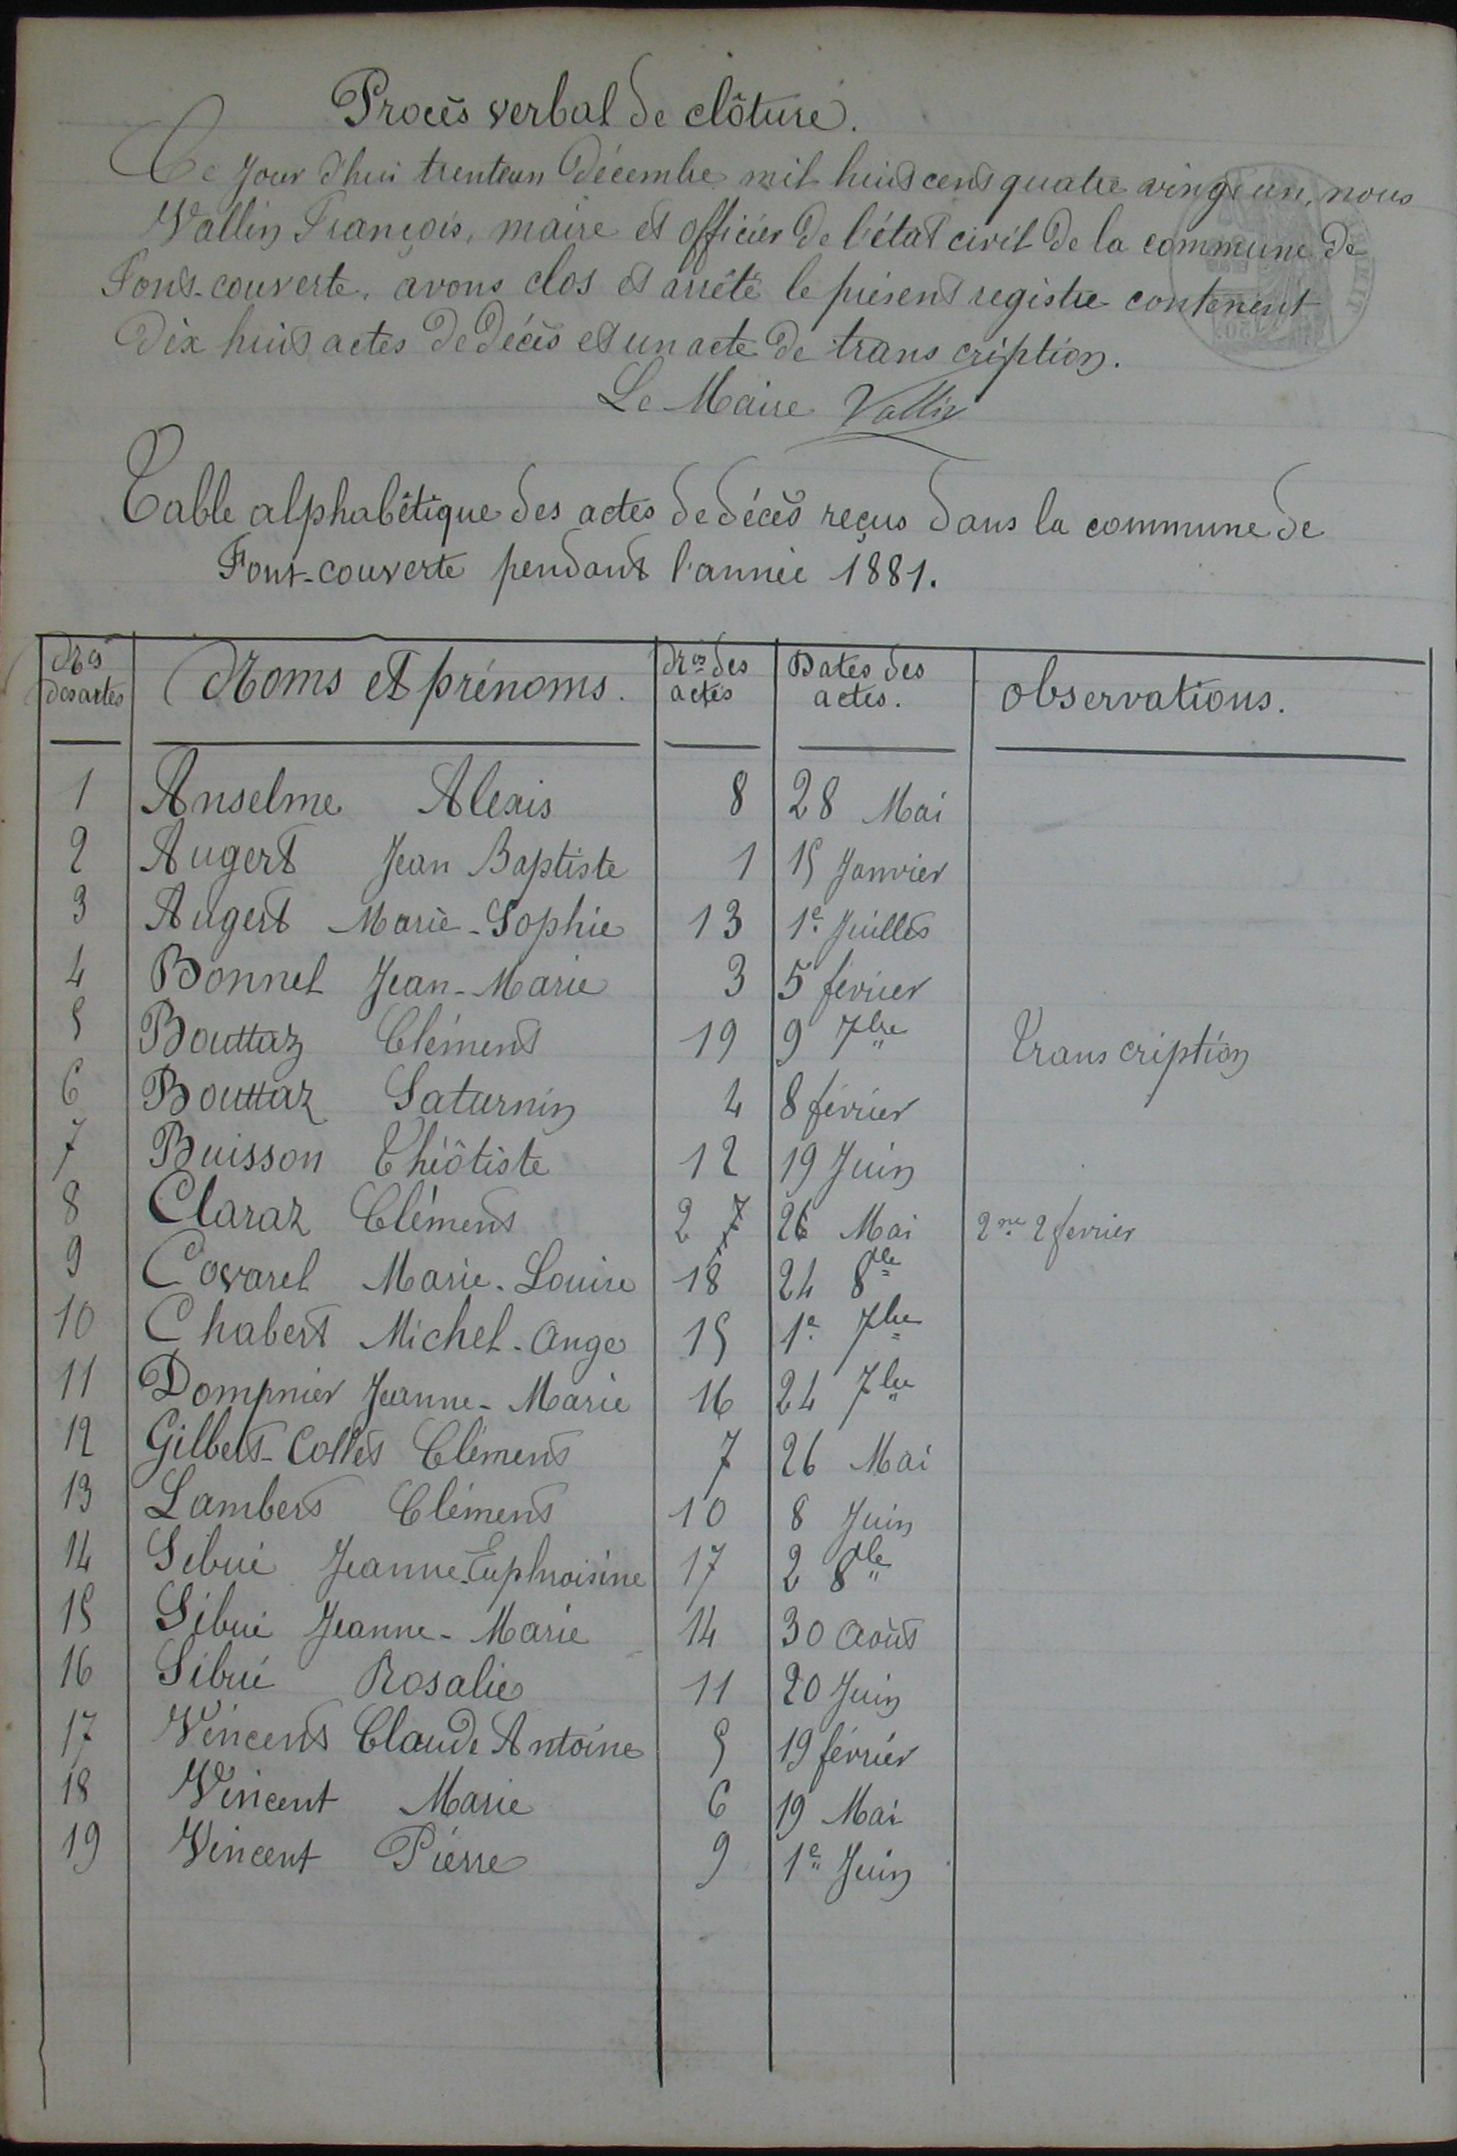 Procès verbal de clôture.
Ce jour d'hui trente un Décembre mil huit cent quatre vingt un, nous
Vallin François, maire et officier de l'état civil de la commune de
Font-couverte, avons clos et arrêté le présent registre contenent
Dix huit actes de décès et un acte de trans cription.
Le Maire Vallin
Table alphabétique des actes de décès reçus dans la commune de
Font-couverte pendant l'année 1881.
Nos des actes Noms et prénoms. Nos des actes Dates des actes. observations.
1 Anselme Alexis 8 28 Mai
2 Augert Jean Baptiste 1 15 Janvier
3 Augert Marie-Sophie 13 1e Juillet
4 Bonnel Jean-Marie 3 5 février
5 Bouttaz Clément 19 9 7bre Trans cription
6 Bouttaz Saturnin 4 8 février
7 Buisson Théôtiste 12 19 Juin
8 Claraz Clément 2 7 26 Mai 2 février
9 Covarel Marie-Louise 18 24 8bre
10 Chabert Michel-Ange 15 1e 7bre
11 Dompnier Jeanne-Marie 16 24 7bre
12 Gilbert-Collet Clément 7 26 Mai
13 Lambert Clément 10 8 Juin
14 Sibué Jeanne-Euphroisine 17 2 8bre
15 Sibué Jeanne-Marie 14 30 Août
16 Sibué Rosalie 11 20 Juin
17 Vincent Claude Antoine 5 19 février
18 Vincent Marie 6 19 Mai
19 Vincent Pierre 9 1e Juin